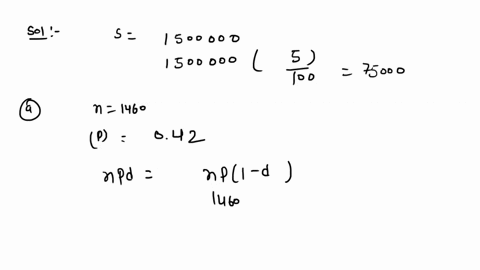 Sol :- S = 1500000
1500000 ( 5/100 ) = 75000
(a) n = 1460
(P) = 0.42
nPd = nP(1-d )
1460